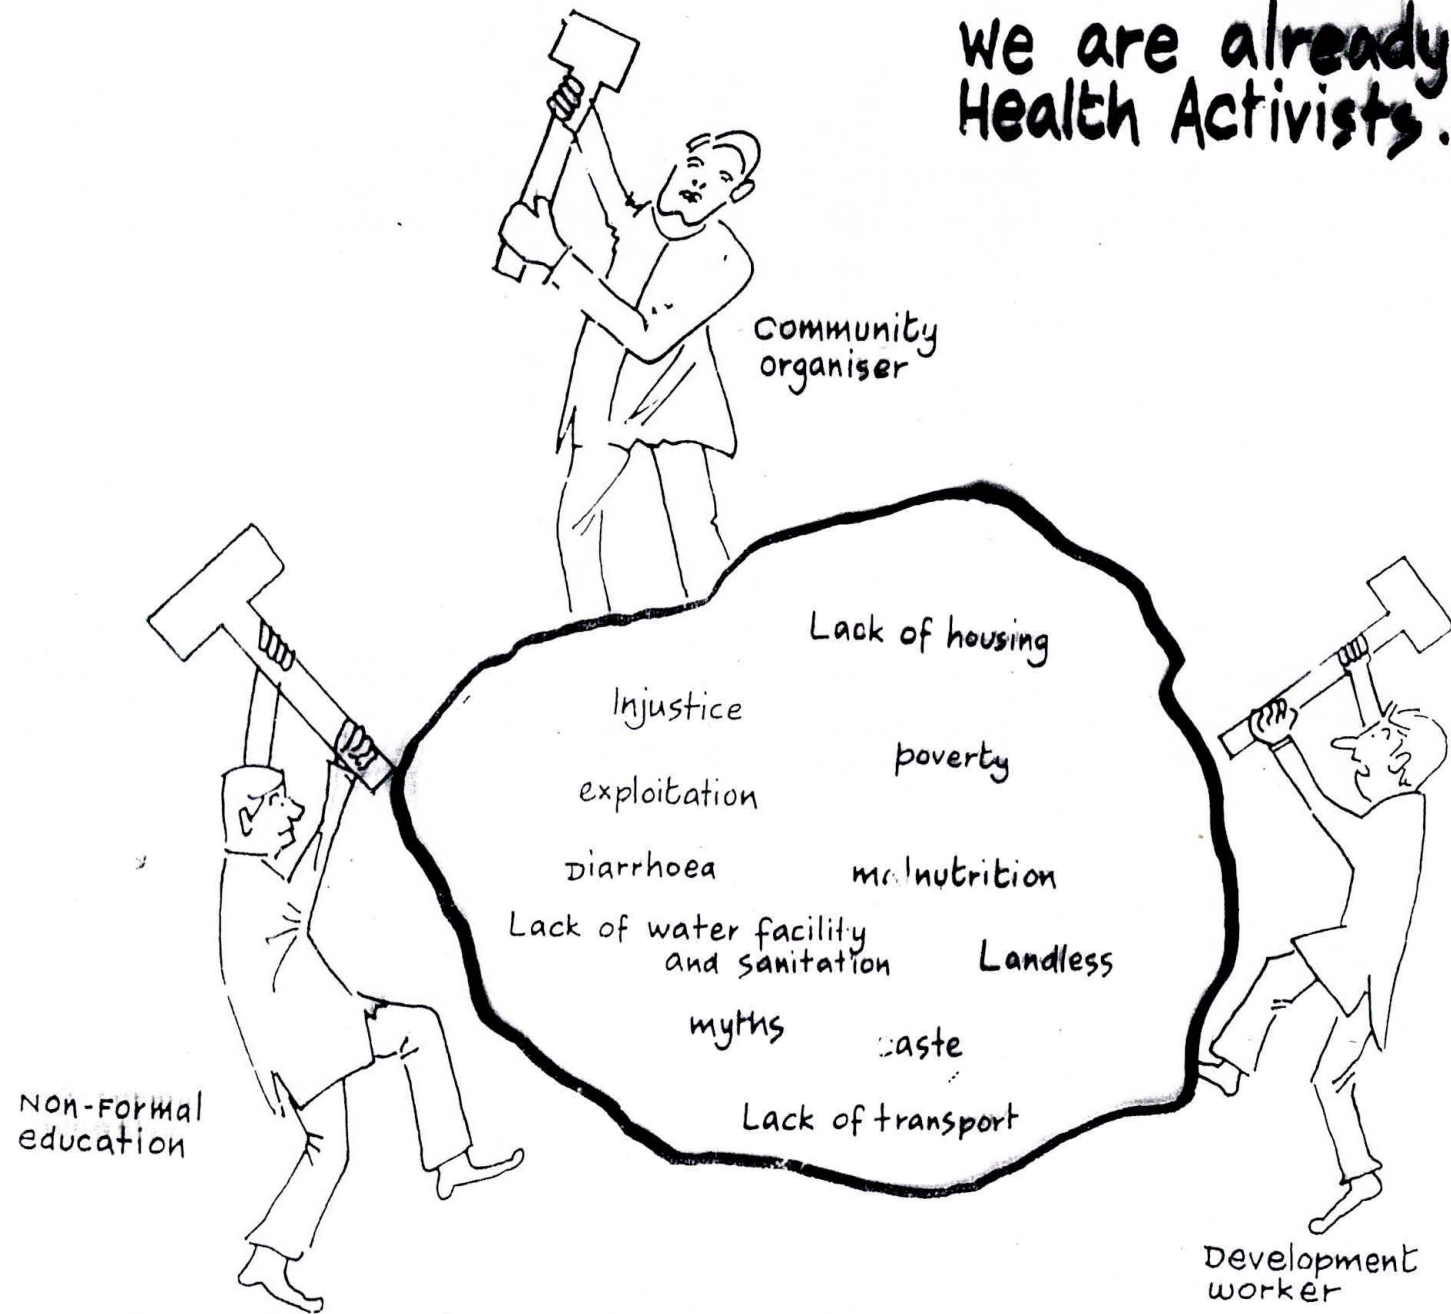 We are already
Health Activists.
Community
organiser
Lack of housing
Injustice
poverty
exploitation
Diarrhoea
malnutrition
Lack of water facility
and sanitation
Landless
myths
caste
Lack of transport
Non-Formal
education
Development
worker